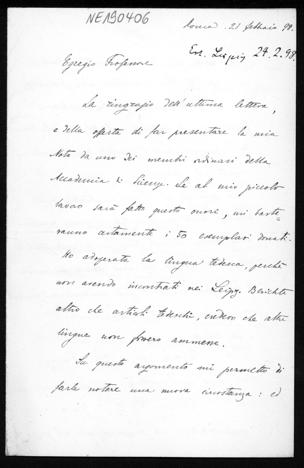 NE190406
Roma. 21 febbraio 98.
Erh. Leipzig 24.2.98.
Egregio Professore
La ringrazio dell'ultima lettera,
e della offerta di far presentare la mia
Nota da uno dei membri ordinari della
Accademia di Scienze. Se al mio piccolo
lavoro sarà fatto questo onore, mi baste-
ranno certamente i 50 esemplari donati.
Ho adoperato la lingua tedesca, perchè
non avendo incontrati nei Leipz. Berichte
altro che articoli tedeschi, credevo che altre
lingue non fossero ammesse.
Su questo argomento mi permetto di
farle notare una nuova circostanza: ed